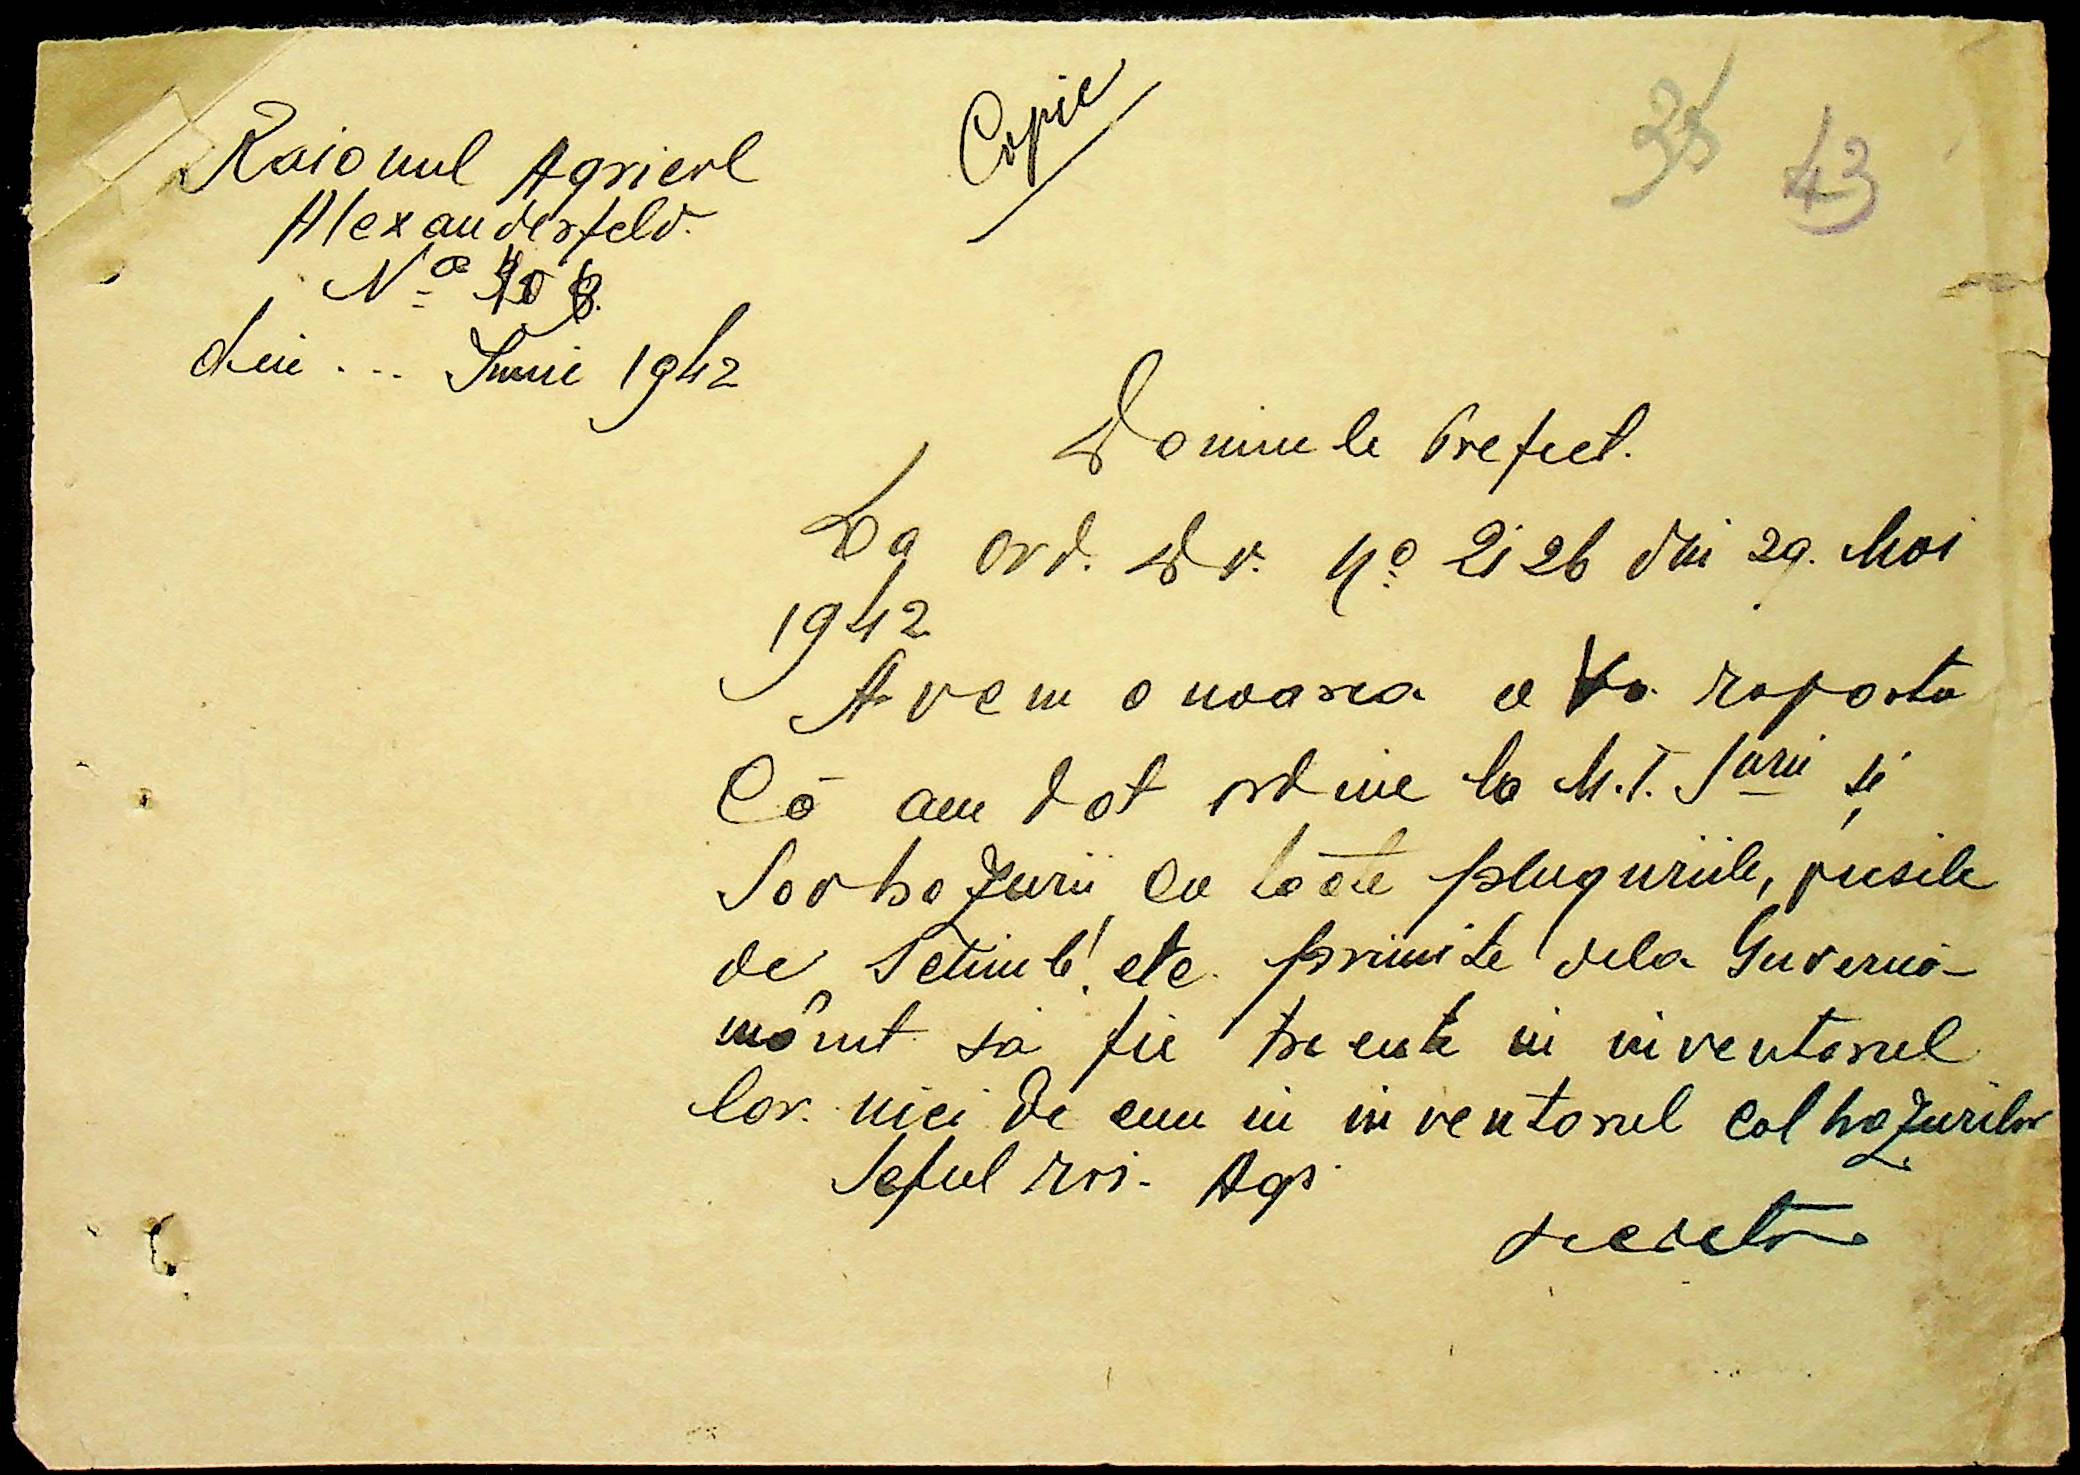 Copie
38 43
Raionul Agricol
Alexanderfeld.
No
din ... Iunie 1942
Domnule Prefect.
La ord. Dv. No 2126 din 29. Mai
1942
Avem onoarea a Va raporta
Că am dat ordine la M.T. S urii și
Sovhozurii ca toate pluguriile, piesile
de Schimb! etc. primite dela Guvernă-
mânt să fie trecute in inventarul
lor. nici de cum in inventarul Colhozurilor
Seful rai. Agr.
secretar